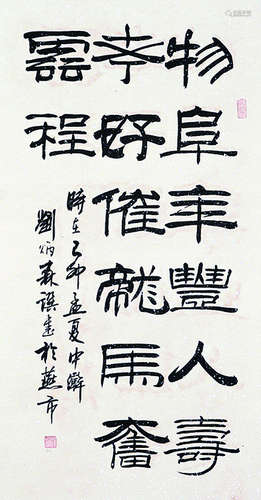 物阜年豐人壽
考好催龍馬奮
雲程
時在卯孟夏中澣
劉炳森撰書於燕市